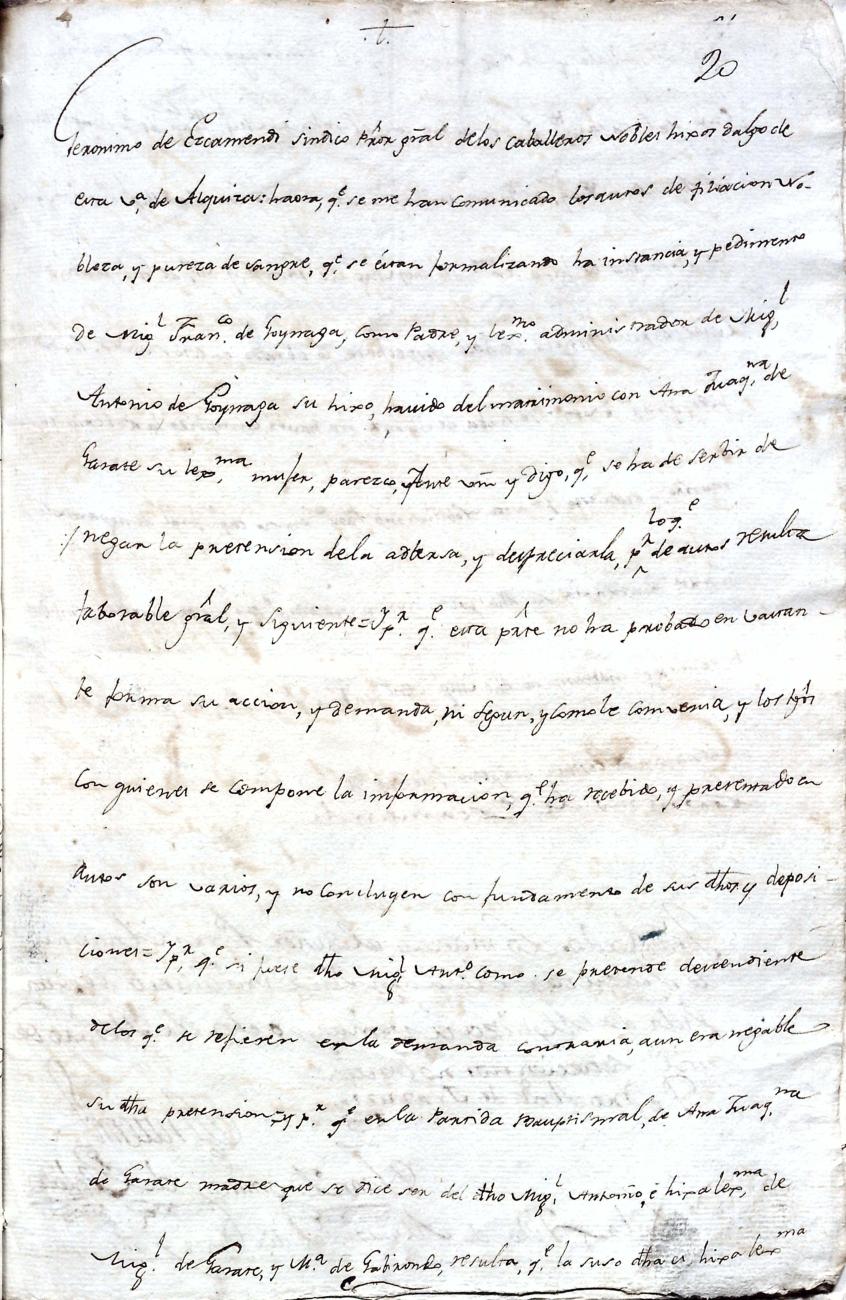 t.
20
Ieronimo de Ercamendi sindico Pror gral delos Caballeros Nobles hixos dalgo de
esta va. de Alquiza: haora, qe. se me han Comunicado los autos de filiacion No-
bleza, y pureza de sangre, qe. se estan formalizando ha instancia, y pedimento
de Migl Franco. de Goynaga, como Padre, y lexmo. administrador de Migl
Antonio de Goynaga su hixo, havido del matrimonio con Ana Juaqna. de
Garate su lexma. muger, parezco, Ante vm y digo, qe, se ha de serbir de
negar la pretension dela adbersa, y despreciarla, pr loqe. de autos resulta
faborable gral, y siguiente = Y pr. qe. esta parte no ha probado en vastan-
te forma su accion, y demanda, ni segun, y como le convenia, y los tgos
con quienes se compone la informacion, qe ha recebido, y presentado en
Autos son varios, y no Concluyen con fundamento de sus dhos y deposi-
ciones = Y pr. qe. si fuese dho Migl Anto. como se pretende descendiente
delos qe. se refieren en la demanda contraria, aun era negable
su dha pretension = y pr. qe en la Partida Bauptismal, de Ana Juaqna.
de Garate madre que se dice ser del dho Migl. Antonio, é hixa lexma. de
Migl. de Garate, y Ma. de Gabirondo, resulta, qe. la suso dha es hixa lexma